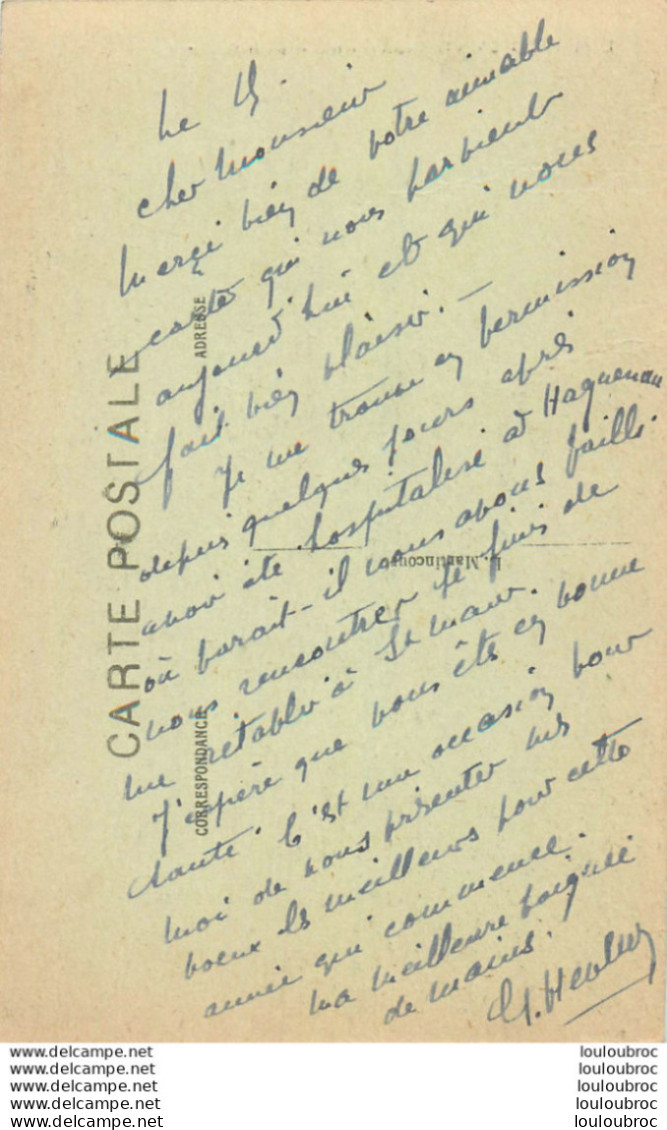 Le 15.
Cher Monsieur
Merçi bien de votre aimable
carte qui nous parvient
aujourd'hui et qui nous
fait bien plaisir. —
Je me trouve en permission
depuis quelques jours après
avoir été hospitalisé à Haguenau
où parait-il nous avons failli
nous rencontrer. Je finis de
me rétablir à St maur.
J'espère que vous êtes en bonne
santé. C'est une occasion pour
moi de vous présenter mes
voeux les meilleurs pour cette
année qui commence.
Ma meilleure poignée
de mains.
CARTE POSTALE
CORRESPONDANCE
ADRESSE
www.delcampe.net
www.delcampe.net
www.delcampe.net
www.delcampe.net
www.delcampe.net
louloubroc
louloubroc
louloubroc
louloubroc
louloubroc